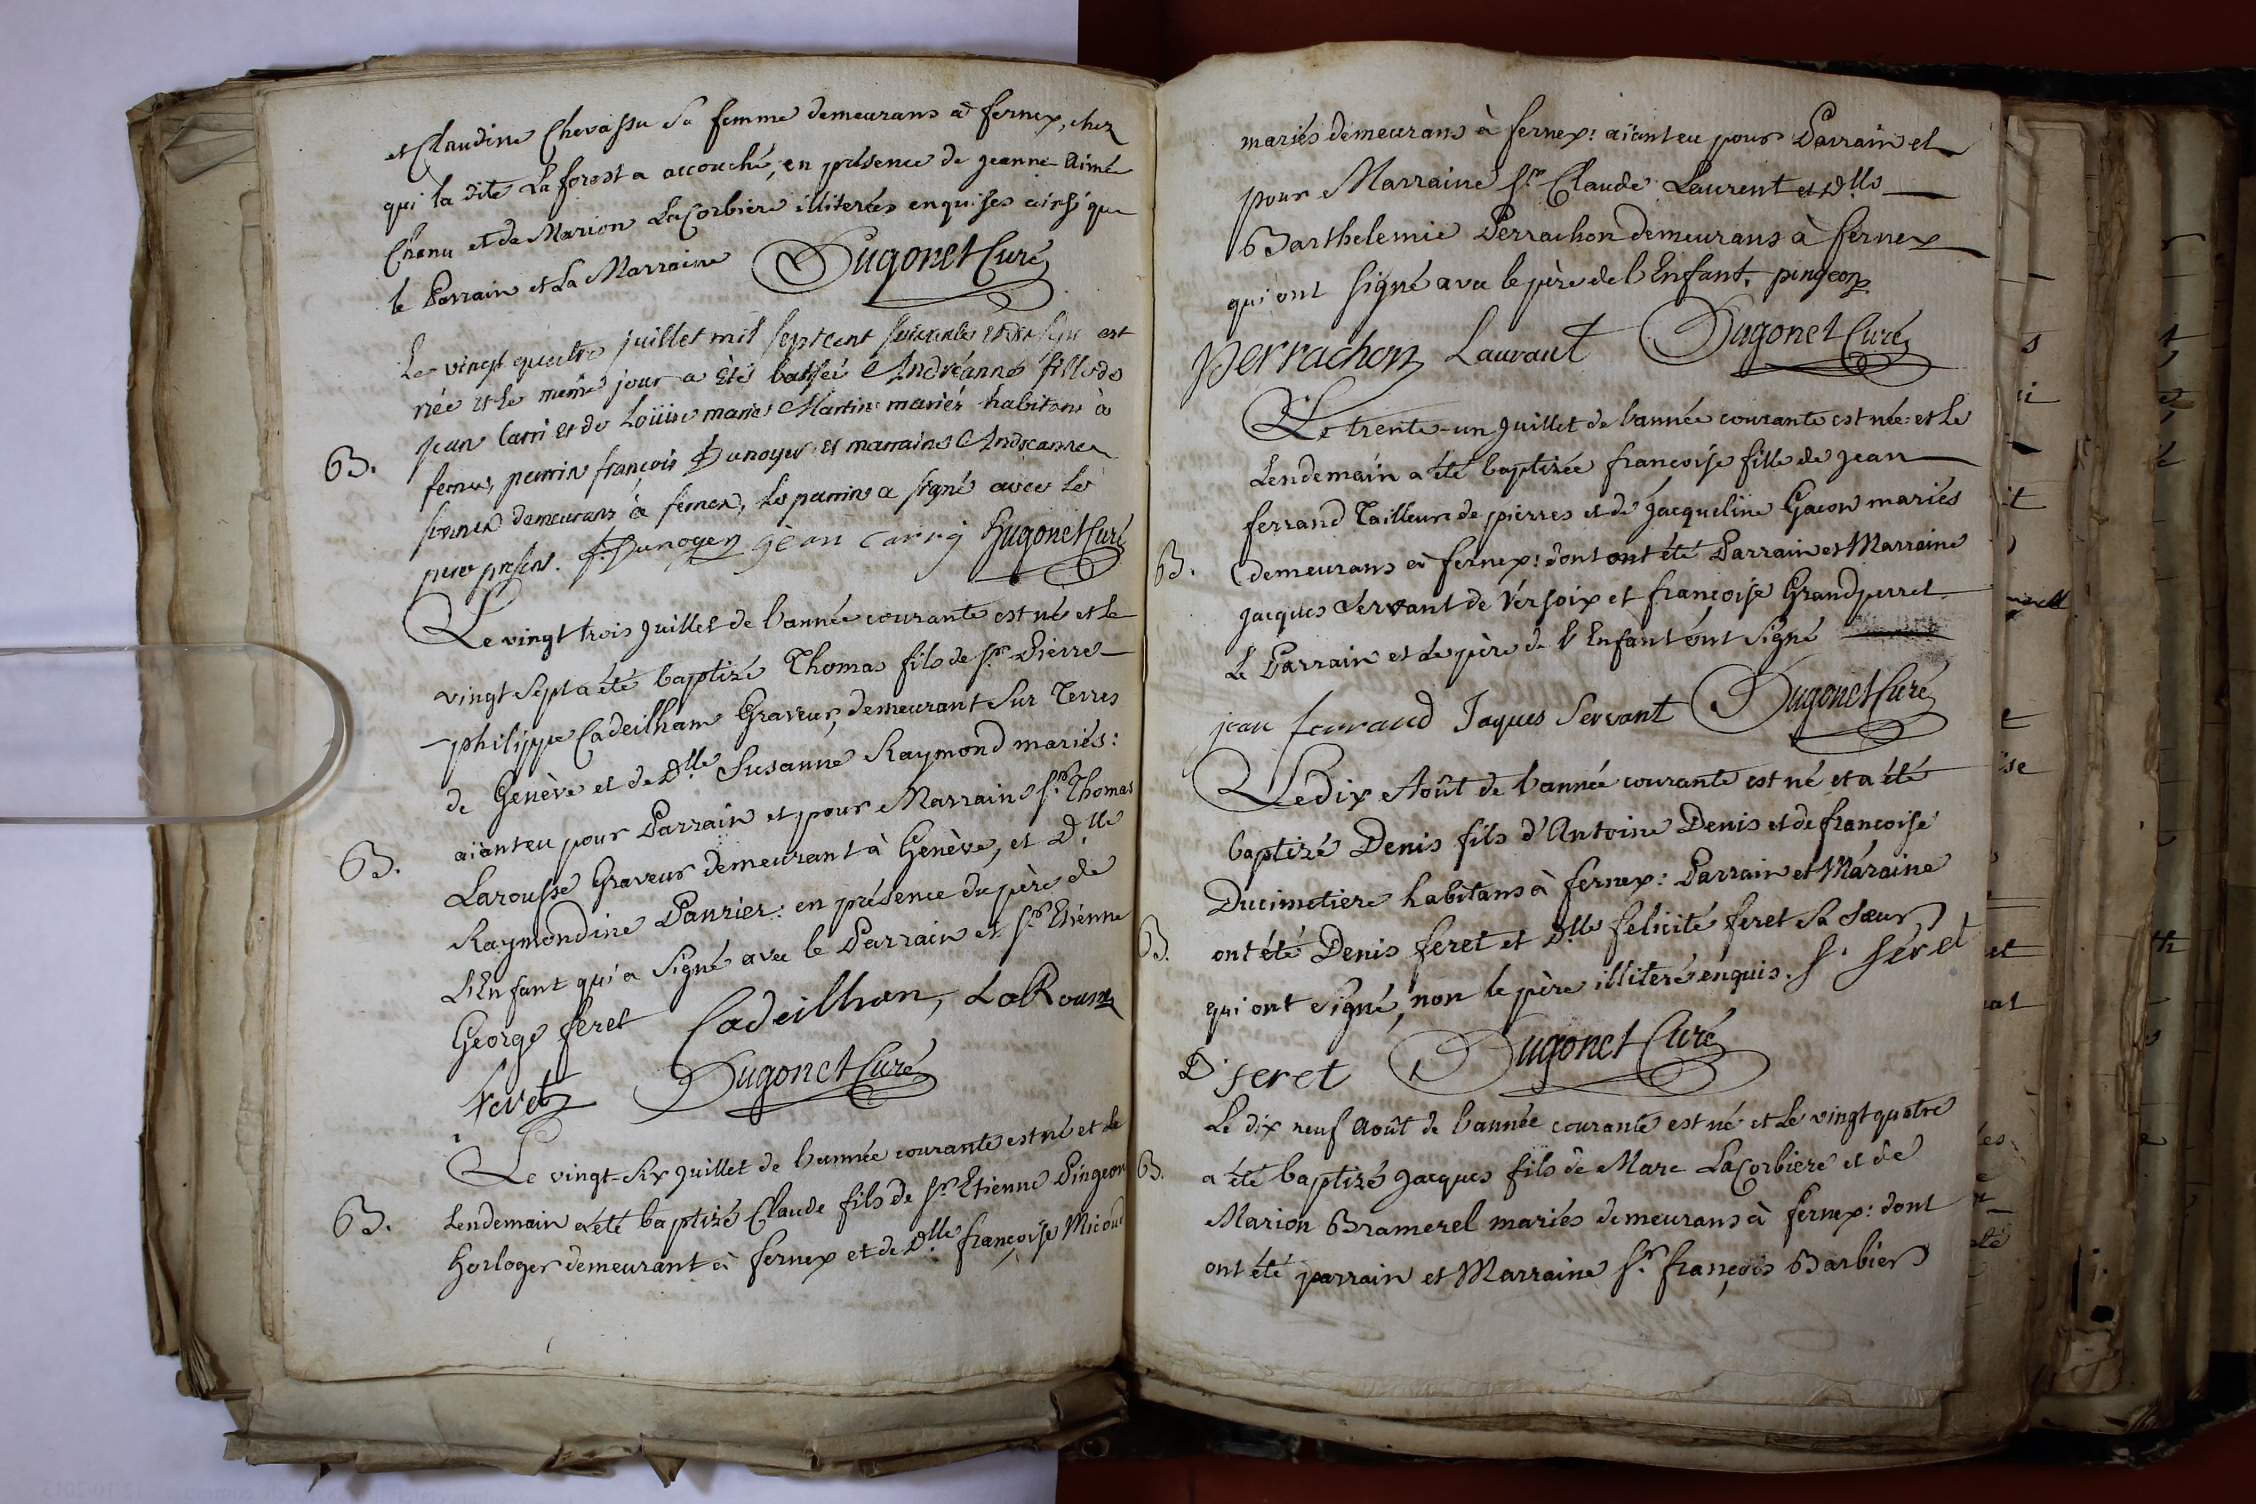 et Claudine Chevassu Sa femme demeurans à fernex, chez
qui la dite Laforest a accouché, en présence de jeanne Aimée
Chenu et de Marion LaCorbiere illiterées enquises ainsi que
le Parrain et La Marraine Hugonet Curé
Le vingt quattre juillet mil sept cent soixante et dix sept est
née et le même jour a Été batisé Andréanne fille de
jean Carri et de Loüise maries Martin mariés habitans à
B.
fernex, parrin françois Dunoyer et marraine Andreanne
demeurans à fernex, le parrin a signé avec le
pere present. f. Dunoyer jean carry Hugonet Curé
Le vingt trois Juillet de l'année courante est né et le
vingt Sept a été baptizé Thomas fils de Sr. Pierre
philippe Cadeilham Graveur, demeurant Sur Terres
de Genève et de Dlle Susanne Raymond mariés:
aïant eu pour Parrain et pour Marraine Sr. Thomas
B.
Larousse Graveur demeurant à Genève, et Dlle
Raymondine Panrier: en présence du père de
L'Enfant qui a Signé avec le Parrain et Sr. Etienne
George feret Cadeilhan, LaRousse
feret Hugonet Curé
Le vingt-Six Juillet de l'année courante est né et le
B.
Lendemain a été baptizé Claude fils de Sr. Etienne Pingeon
horloger demeurant à fernex et de Dlle françoise Micoud
mariés demeurans à fernex: aïant eu pour Parrain et
pour Marraine Sr. Claude Laurent et Dlle
Barthelemie Perrachon demeurans à fernex
qui ont Signé avec le père de l'Enfant. pingeon
perrachon Lauraut Hugonet Curé
Le trente-un Juillet de l'année courante est née et le
Lendemain a été baptizée françoise fille de Jean
ferrand Tailleur de pierres et de Jacqueline Gacon mariés
B.
demeurans à fernex: dont ont été Parrain et Marraine
Jacques Servant de Versoix et françoise Grandperret
Le Parrain et le père de l'Enfant ont Signé
jean ferraud Jaques Servant Hugonet Curé
Le dix Août de l'année courante est né et a été
baptizé Denis fils d'Antoine Denis et de françoise
Ducimetiere habitans à fernex: Parrain et Máraine
B.
ont été Denis feret et Dlle felicité feret Sa Sœur
qui ont signé, non le père illiteré enquis. f. féret
D. feret Hugonet Curé
Le dix neuf Août de l'année courante est né et le vingt quatre
B.
a été baptizé Jacques fils de Marc LaCorbiere et de
Marion Bramerel mariés demeurans à fernex: dont
ont été parrain et Marraine Sr. françois Barbier